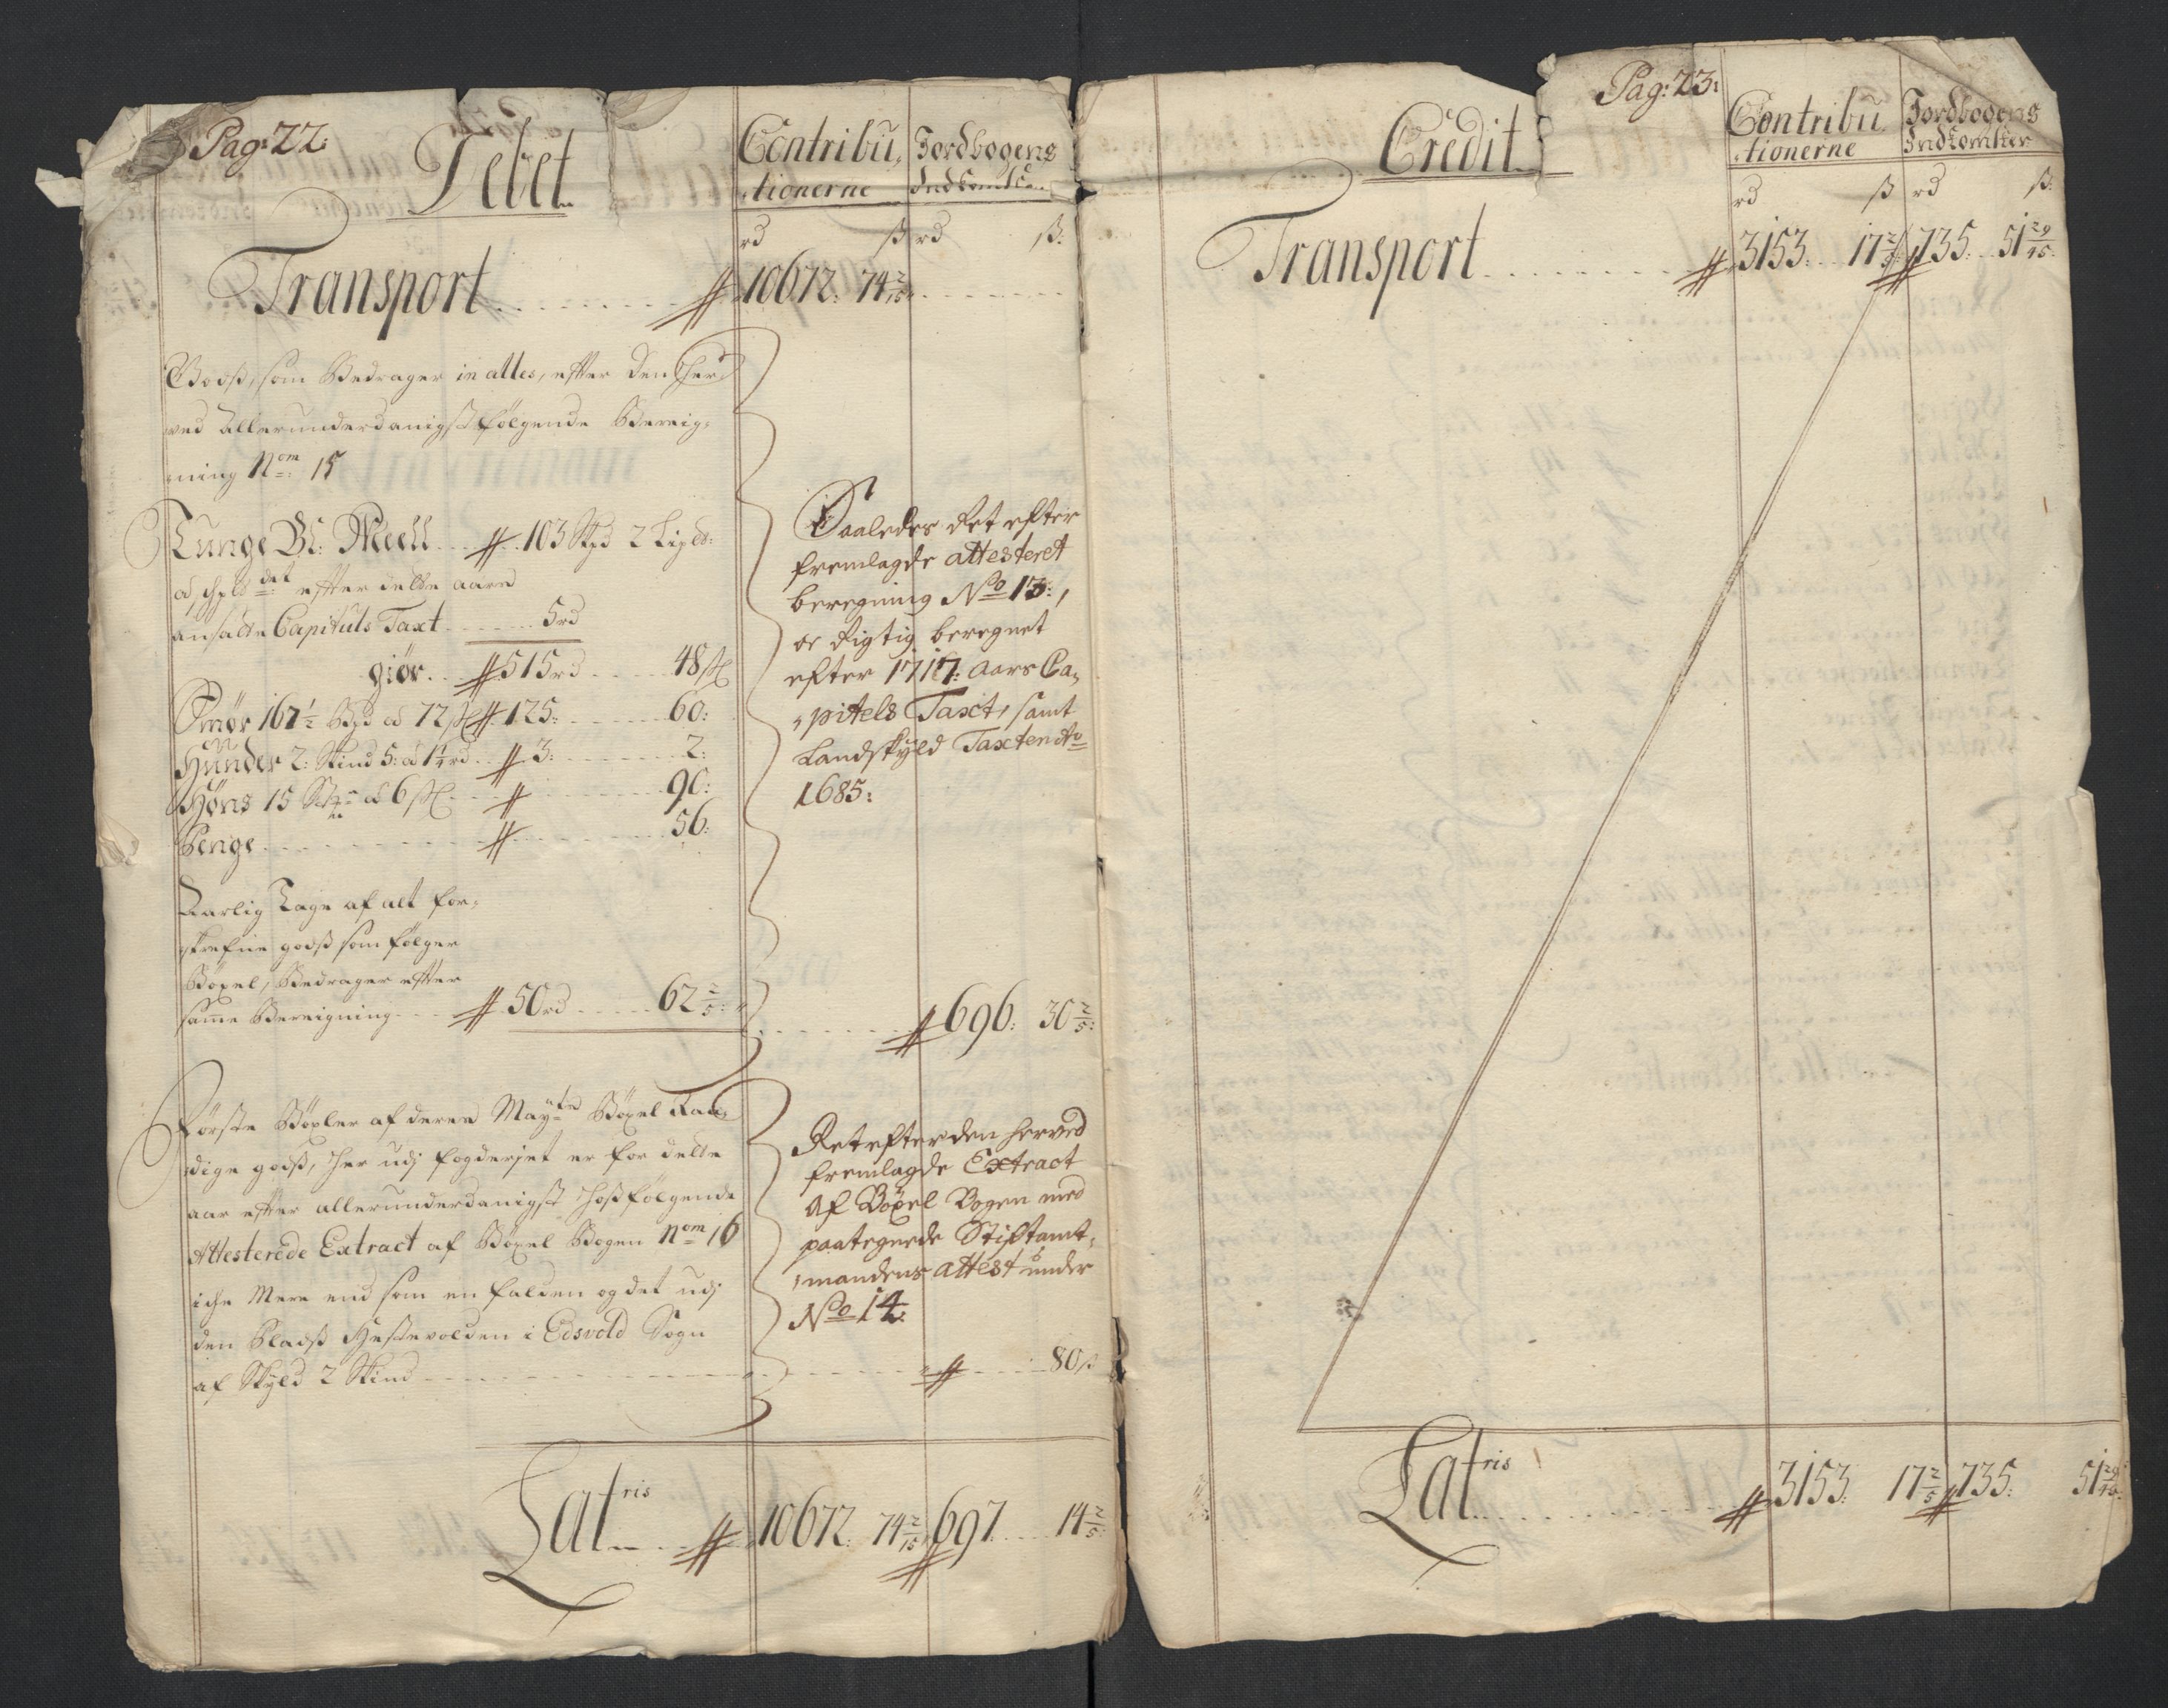 Pag: 22:
Debet
Contribu,
tionerne
Jordbogens
Indkomster
rd ß rd ß:
Transport # 10672: 74 2/15
Godß, som Bedrager in alles, efter den her
ved allerunderdanigst følgende Bereig,
ning Nom 15
Tunge Bl: Meell # 103 Skpd 2 Lispd:
det efter dette aars
ansatte Capituls Taxt 5 rd
giør # 515 rd 48 ß
Smør 167 1/2 Bpd ad 72 ß # 125: 60:
Hunder 2: Skind 5: ad 1 1/4 rd # 3: 2:
Høns 15 ad 6 ß # 90:
Penge # 56:
Aarlig Tage af alt for,
skrefne godß som følger
Böxel, Bedrager efter
samme Bereigning # 50 rd 62 2/5:
# 696: 30 2/5:
Saaledes Ret efter
fremlagde attesteret
beregning No 13:,
oc Rigtig beregnet
efter 1717: aars Ca,
pitels Taxt, samt
Landskyld Taxten Ao
1685:
Første Böxler af deres Mayts Böxel Raa,
dige godß, her udj fogderjet er for dette
aar efter allerunderdanigst hosfølgende
Attesterede Extract af Böxel Bogen Nom 16
iche Mere end som en falden og det udj
den Pladß Hestevolden i Eidsvold Sogn
af Skyld 2 Skind # 80 ß
Ret efter den herved
fremlagde Extract
Af Böxel Bogen med
paategnede Stiftamt,
mandens attest under
No 14:
Latris # 10672: 74 2/15 # 697 14 2/5:
Pag: 23:
Credit
Contribu
tionerne
Jordbogens
Indkomster
rd ß rd ß:
Transport # 3153: 17 2/5 # 735: 51 29/45:
Latris # 3153: 17 2/5 # 735: 51 29/45: